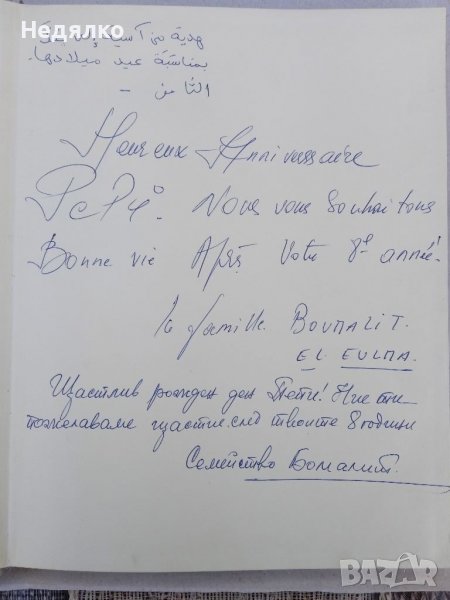 Недялко
هدية من آسيا إلى
بمناسبة عيد ميلادها.
الثامن -
Heureux Anniversaire
PePi. Nous vous Souhaitons
Bonne vie Après Votre 8e année.
la famille BOUMALIT.
EL EULMA.
Щастлив рожден ден Пепи! Ние ти
пожелаваме щастие след твоите 8 години
Семейство Бомалит.
BAZAR.bg